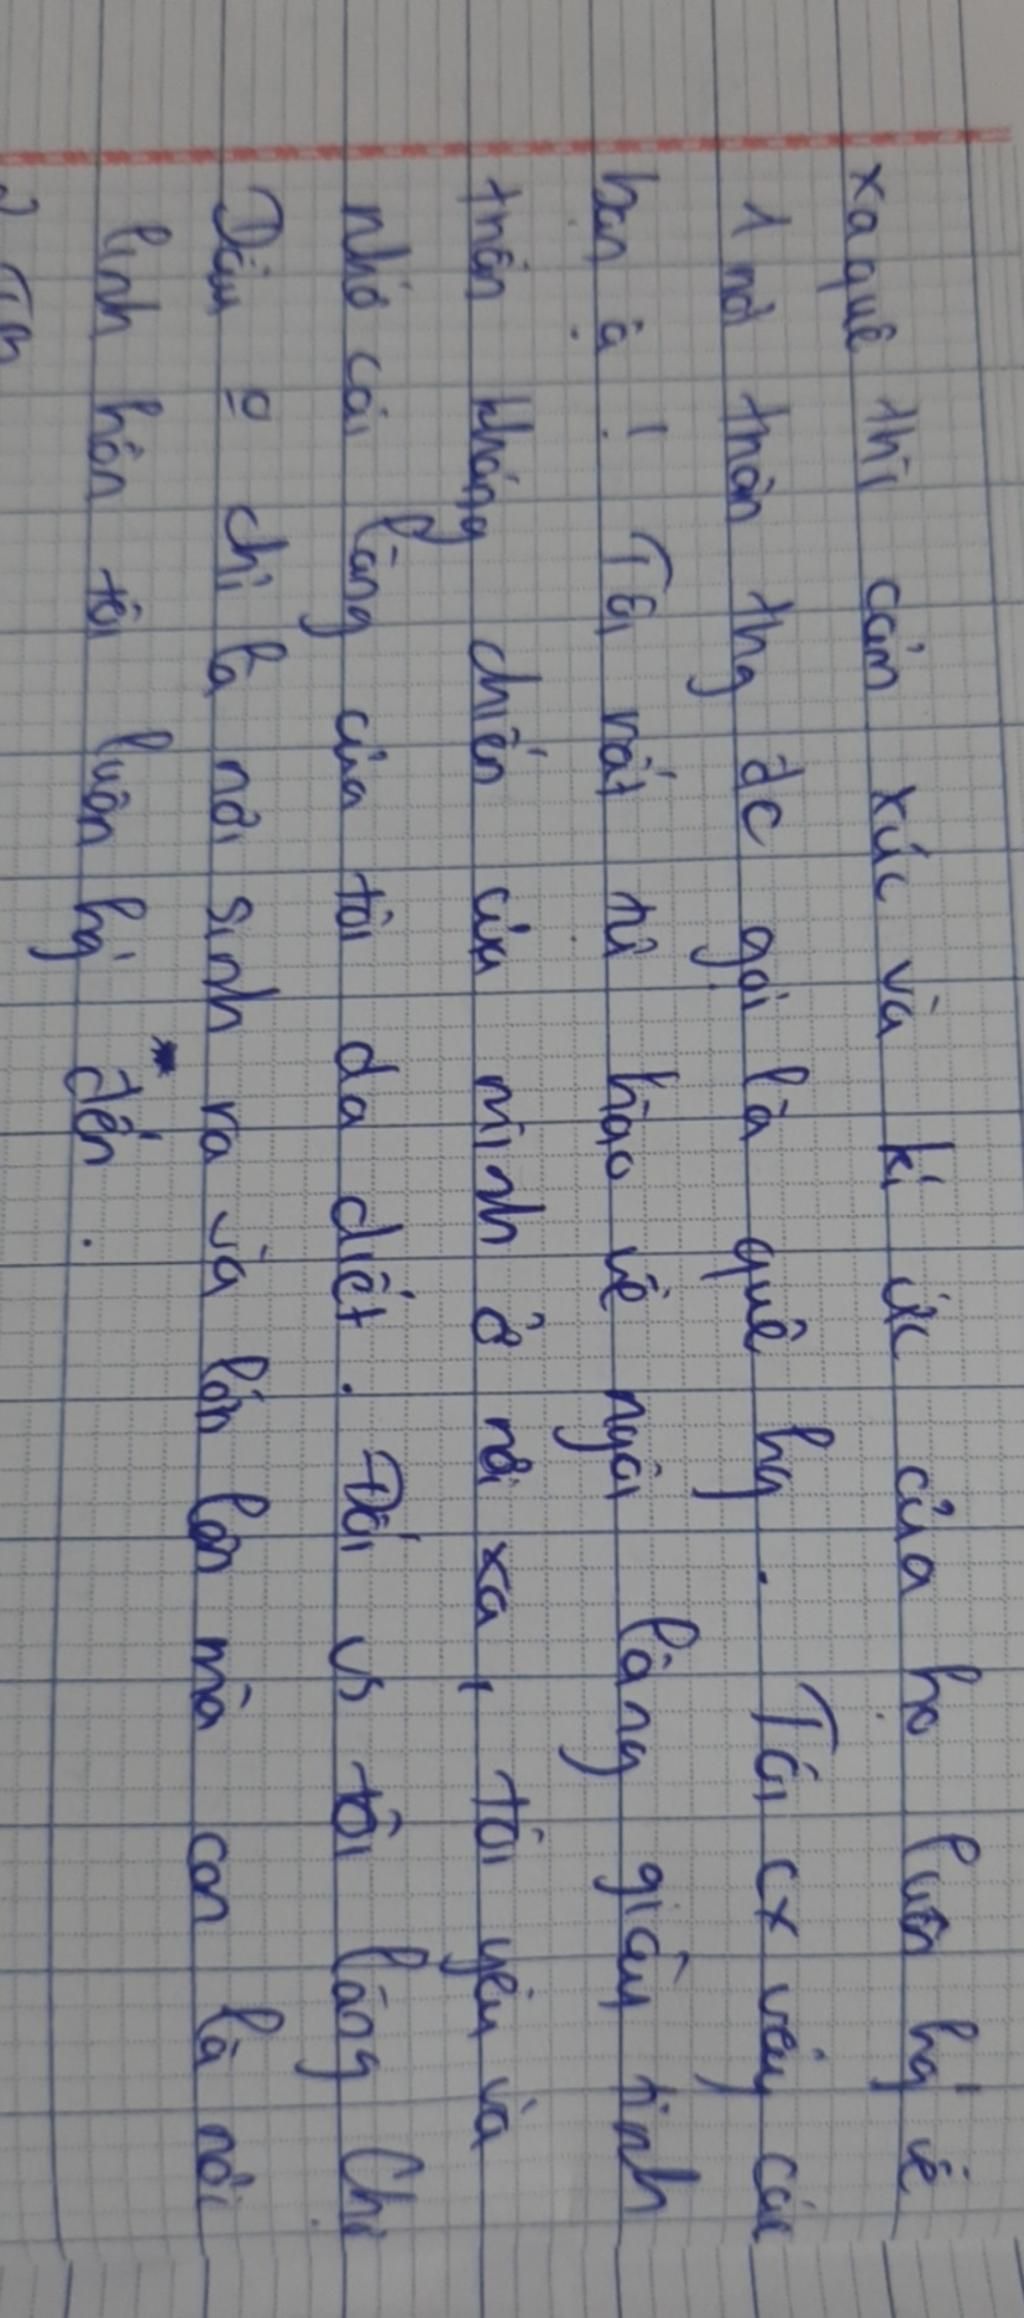 xa quê thì cảm xúc và kí ức của họ luôn hg' về
1 nơi thân thg đc gọi là quê hg. Tôi cx vậy các
bạn ạ! Tôi rất tự hào về ngôi làng giàu tinh
thần kháng chiến của mình ở nơi xa, tôi yêu và
nhớ cái làng của tôi da diết. Đối vs tôi làng Chợ
Dầu o chỉ là nơi sinh ra và lớn lên mà còn là nơi
linh hồn tôi luôn hg' đến.